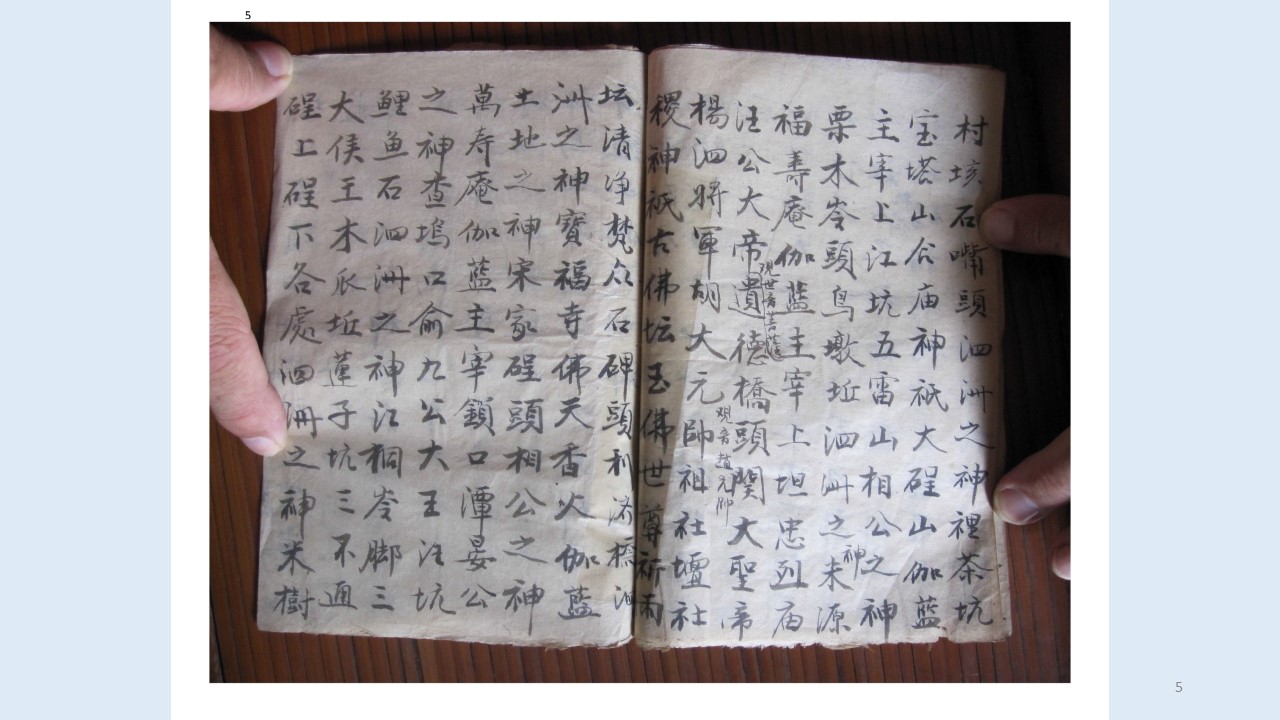 5
村垓石嘴頭泗洲之神裡茶坑
宝塔山合庙神祇大碍山伽藍
主宰上江坑五雷山相公之神
栗木岺頭鸟墩坵泗洲之神耒源
福壽庵伽藍主宰上坦忠烈庙
観世音菩薩
汪公大帝遺德橋頭関大聖帝
観音趙元帅
楊泗將軍胡大元帥祖社壇社
稷神祇古佛坛玉佛世尊祈雨
坛清净梵众石碑頭利济橋泗
洲之神寶福寺佛天香火伽藍
土地之神宋家碍頭相公之神
萬寿庵伽藍主宰鎖口潭晏公
之神查塢口俞九公大王汪坑
鲤鱼石泗洲之神江桐岺脚三
大侯王木瓜坵蓮子坑三不通
碍上碍下各處泗洲之神米樹
5